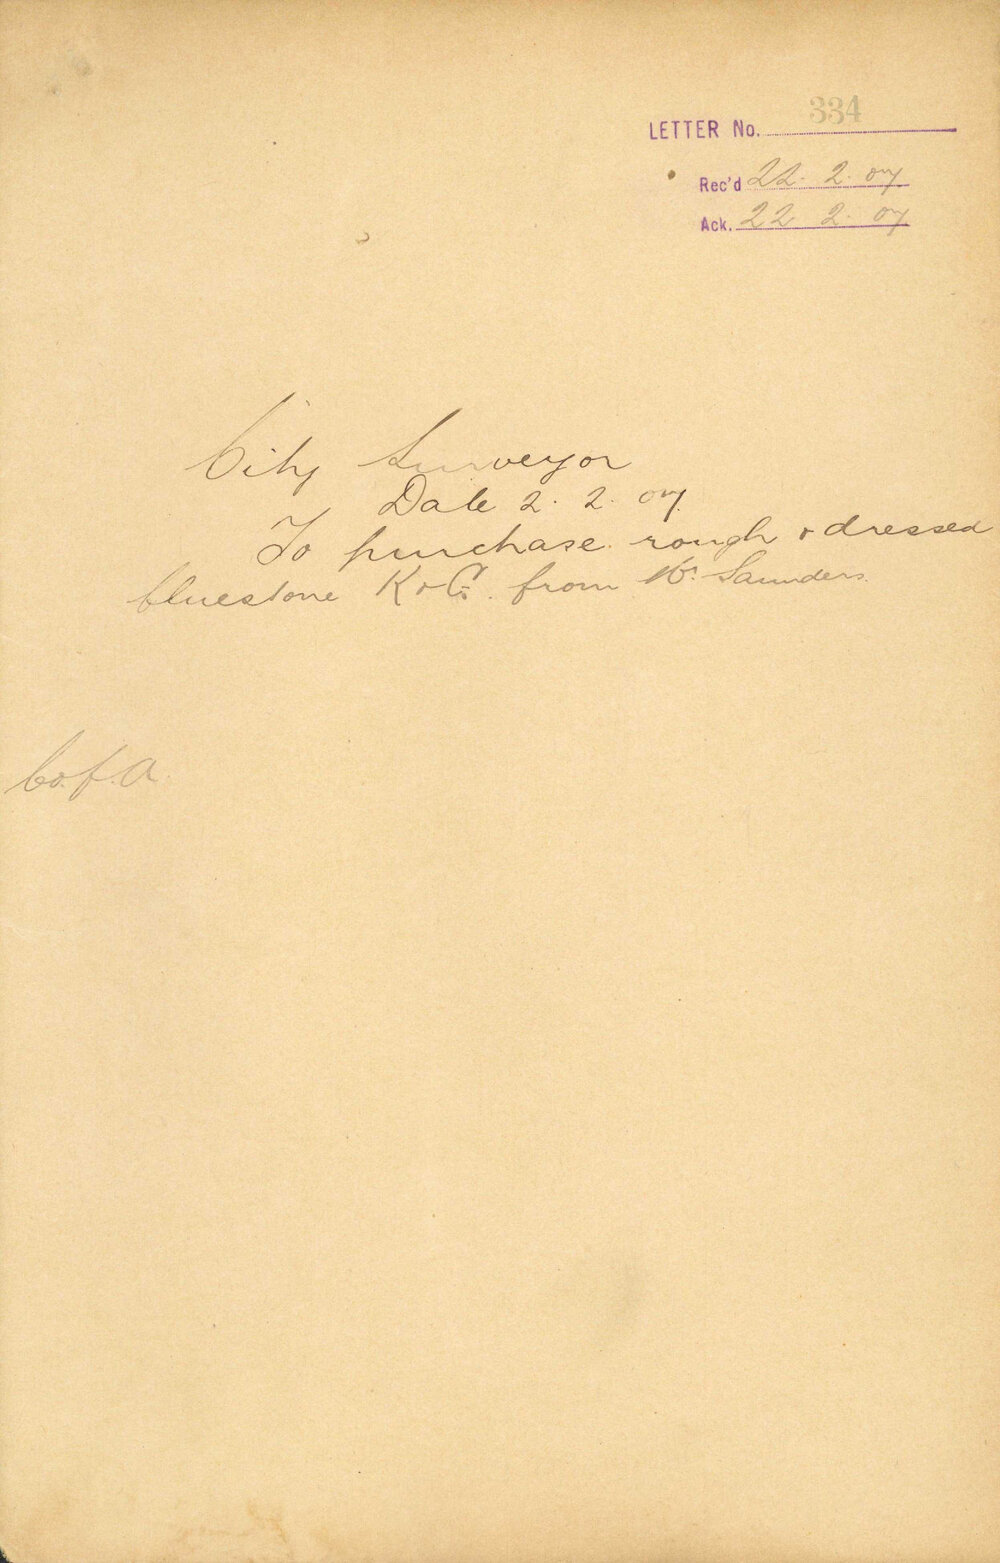 LETTER No. 334
Rec'd 22. 2. 07
Ack. 22 2. 07
City Surveyor
Date 2. 2. 07.
To purchase rough & dressed
bluestone K & C. from W. Saunders.
Co.f.A.